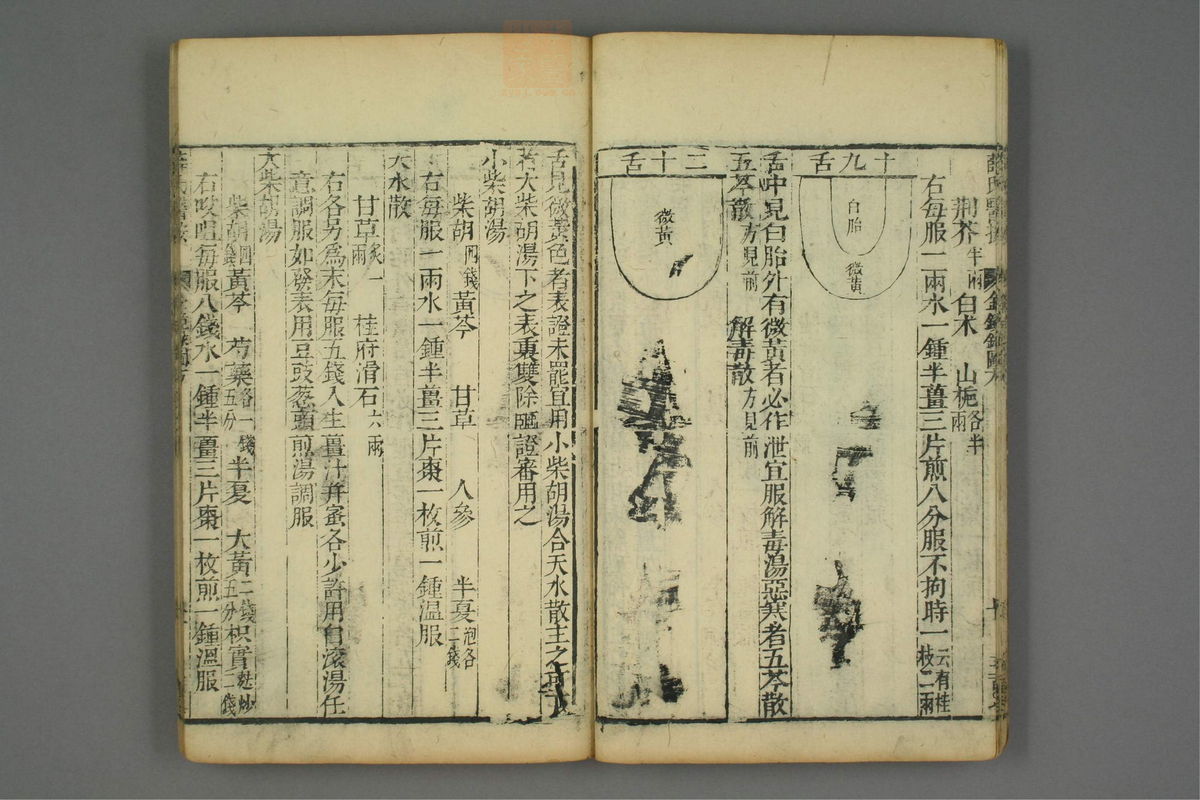 荆芥半兩 白术 山梔各半兩
右每服一兩水一鍾半薑三片煎八分服不拘時一云有桂枝二兩
十九舌
白胎
微黃
舌中見白胎外有微黃者必作泄宜服解毒湯惡寒者五苓散
五苓散方見前 解毒散方見前
二十舌
微黃
舌見微黃色者表證未罷宜用小柴胡湯合天水散主之可下
者大柴胡湯下之表裏雙除臨證審用之
小柴胡湯
柴胡四錢 黃芩 甘草 人參 半夏泡各二錢
右每服一兩水一鍾半薑三片棗一枚煎一鍾温服
天水散
甘草炙一兩 桂府滑石六兩
右各另爲末每服五錢入生薑汁并蜜各少許用白滚湯任
意調服如發表用豆豉葱頭煎湯調服
大柴胡湯
柴胡四錢 黃芩 芍藥各一錢五分 半夏 大黃二錢五分 枳實麩炒二錢
右㕮咀每服八錢水一鍾半薑三片棗一枚煎一鍾温服